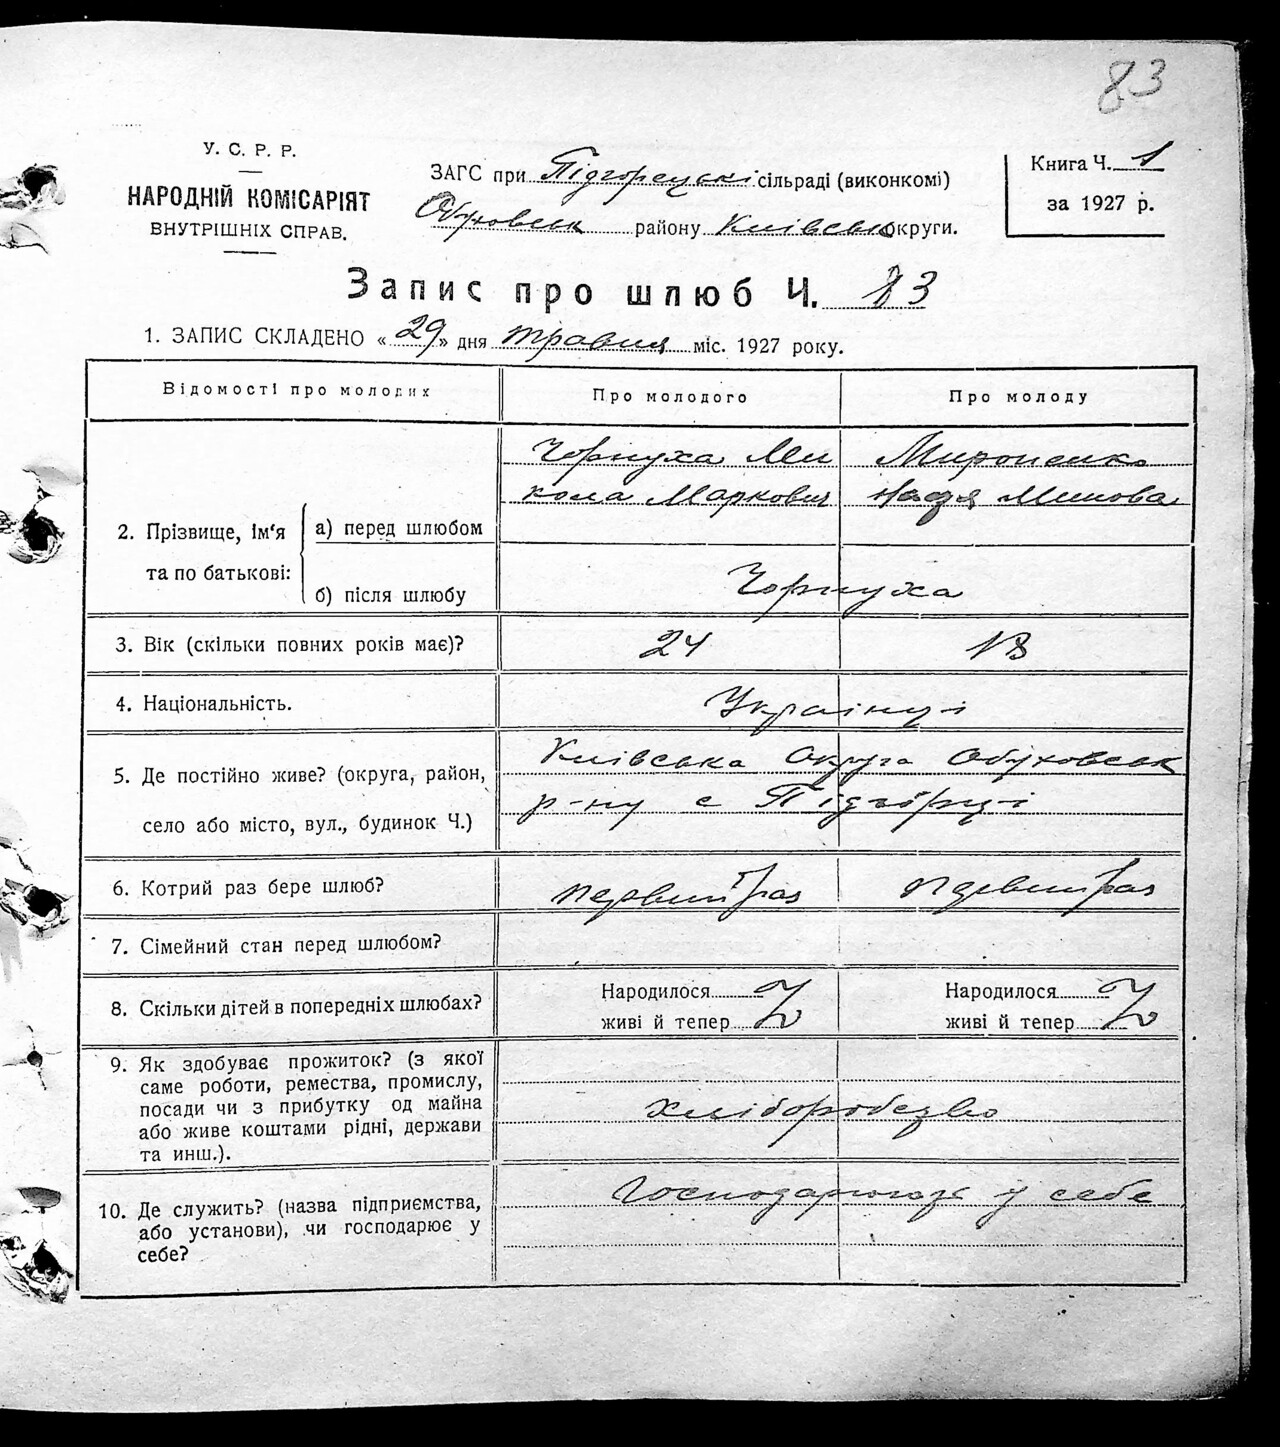 83
У. С. Р. Р.
НАРОДНІЙ КОМІСАРІЯТ
ВНУТРІШНІХ СПРАВ.
ЗАГС при Підгорецькі сільраді (виконкомі)
Обуховськ району Київської округи.
Книга Ч. 1
за 1927 р.
Запис про шлюб Ч. 83
1. ЗАПИС СКЛАДЕНО «29» дня травня міс. 1927 року.
Відомості про молодих
Про молодого
Про молоду
2. Прізвище, ім‘я
та по батькові:
а) перед шлюбом
Чорнуха Ми
кола Маркович
Мироненко
Надя Минова
б) після шлюбу
Чорнуха
3. Вік (скільки повних років має)?
24
18
4. Національність.
Українці
5. Де постійно живе? (округа, район,
село або місто, вул., будинок Ч.)
Київська округа Обуховськ
р-ну с Підгірці
6. Котрий раз бере шлюб?
первий раз
первий раз
7. Сімейний стан перед шлюбом?
8. Скільки дітей в попередніх шлюбах?
Народилося
живі й тепер
Народилося
живі й тепер
9. Як здобуває прожиток? (з якої
саме роботи, ремества, промислу,
посади чи з прибутку од майна
або живе коштами рідні, держави
та инш.).
хліборобство
10. Де служить? (назва підприємства,
або установи), чи господарює у
себе?
у себе